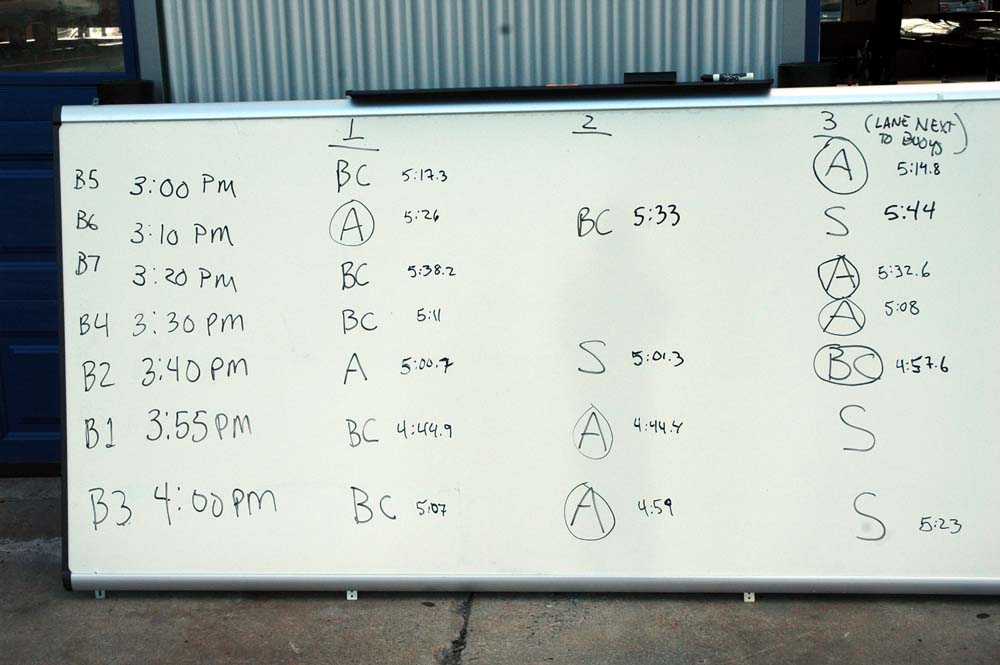 1 2 3 (LANE NEXT TO BUOYS)
B5 3:00 PM BC 5:17.3 A 5:14.8
B6 3:10 PM A 5:26 BC 5:33 S 5:44
B7 3:20 PM BC 5:38.2 A 5:32.6
B4 3:30 PM BC 5:11 A 5:08
B2 3:40 PM A 5:00.7 S 5:01.3 BC 4:57.6
B1 3:55 PM BC 4:44.9 A 4:44.4 S
B3 4:00 PM BC 5:07 A 4:59 S 5:23